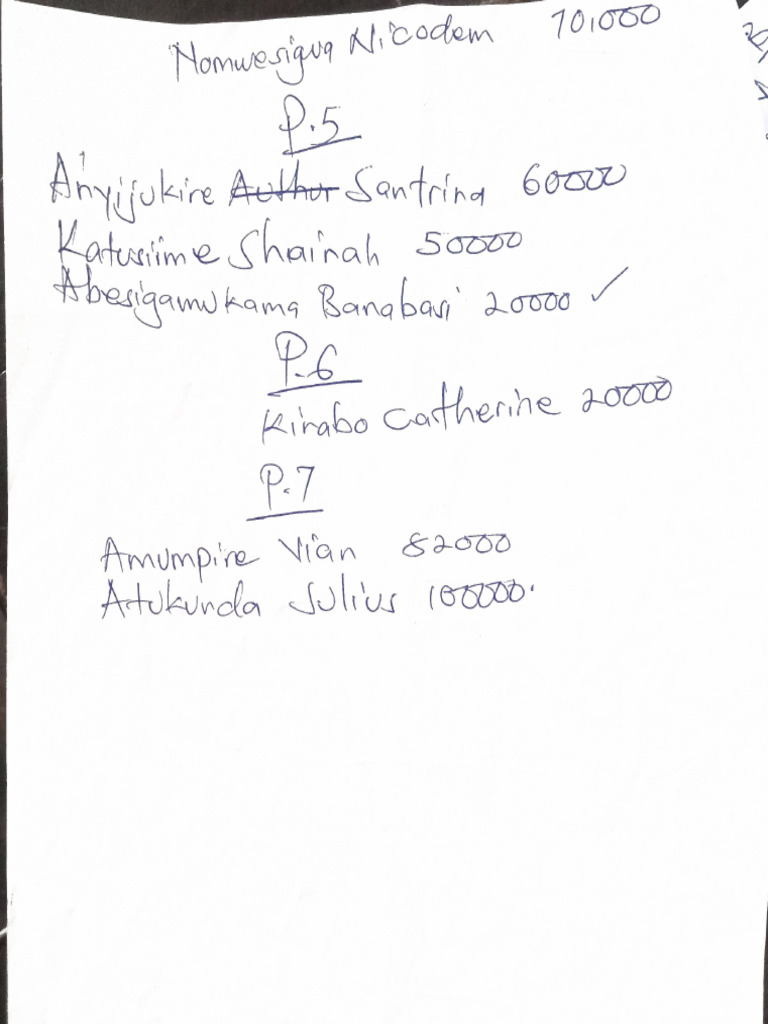 Nomwesigwa Nicodem 70,000
P.5
Anyijukire Author Santrina 60000
Katusiime Shainah 50000
Abesigamukama Banabasi 20000 ✓
P.6
Kirabo Catherine 20000
P.7
Amumpire Vian 82000
Atukunda Julius 100000.